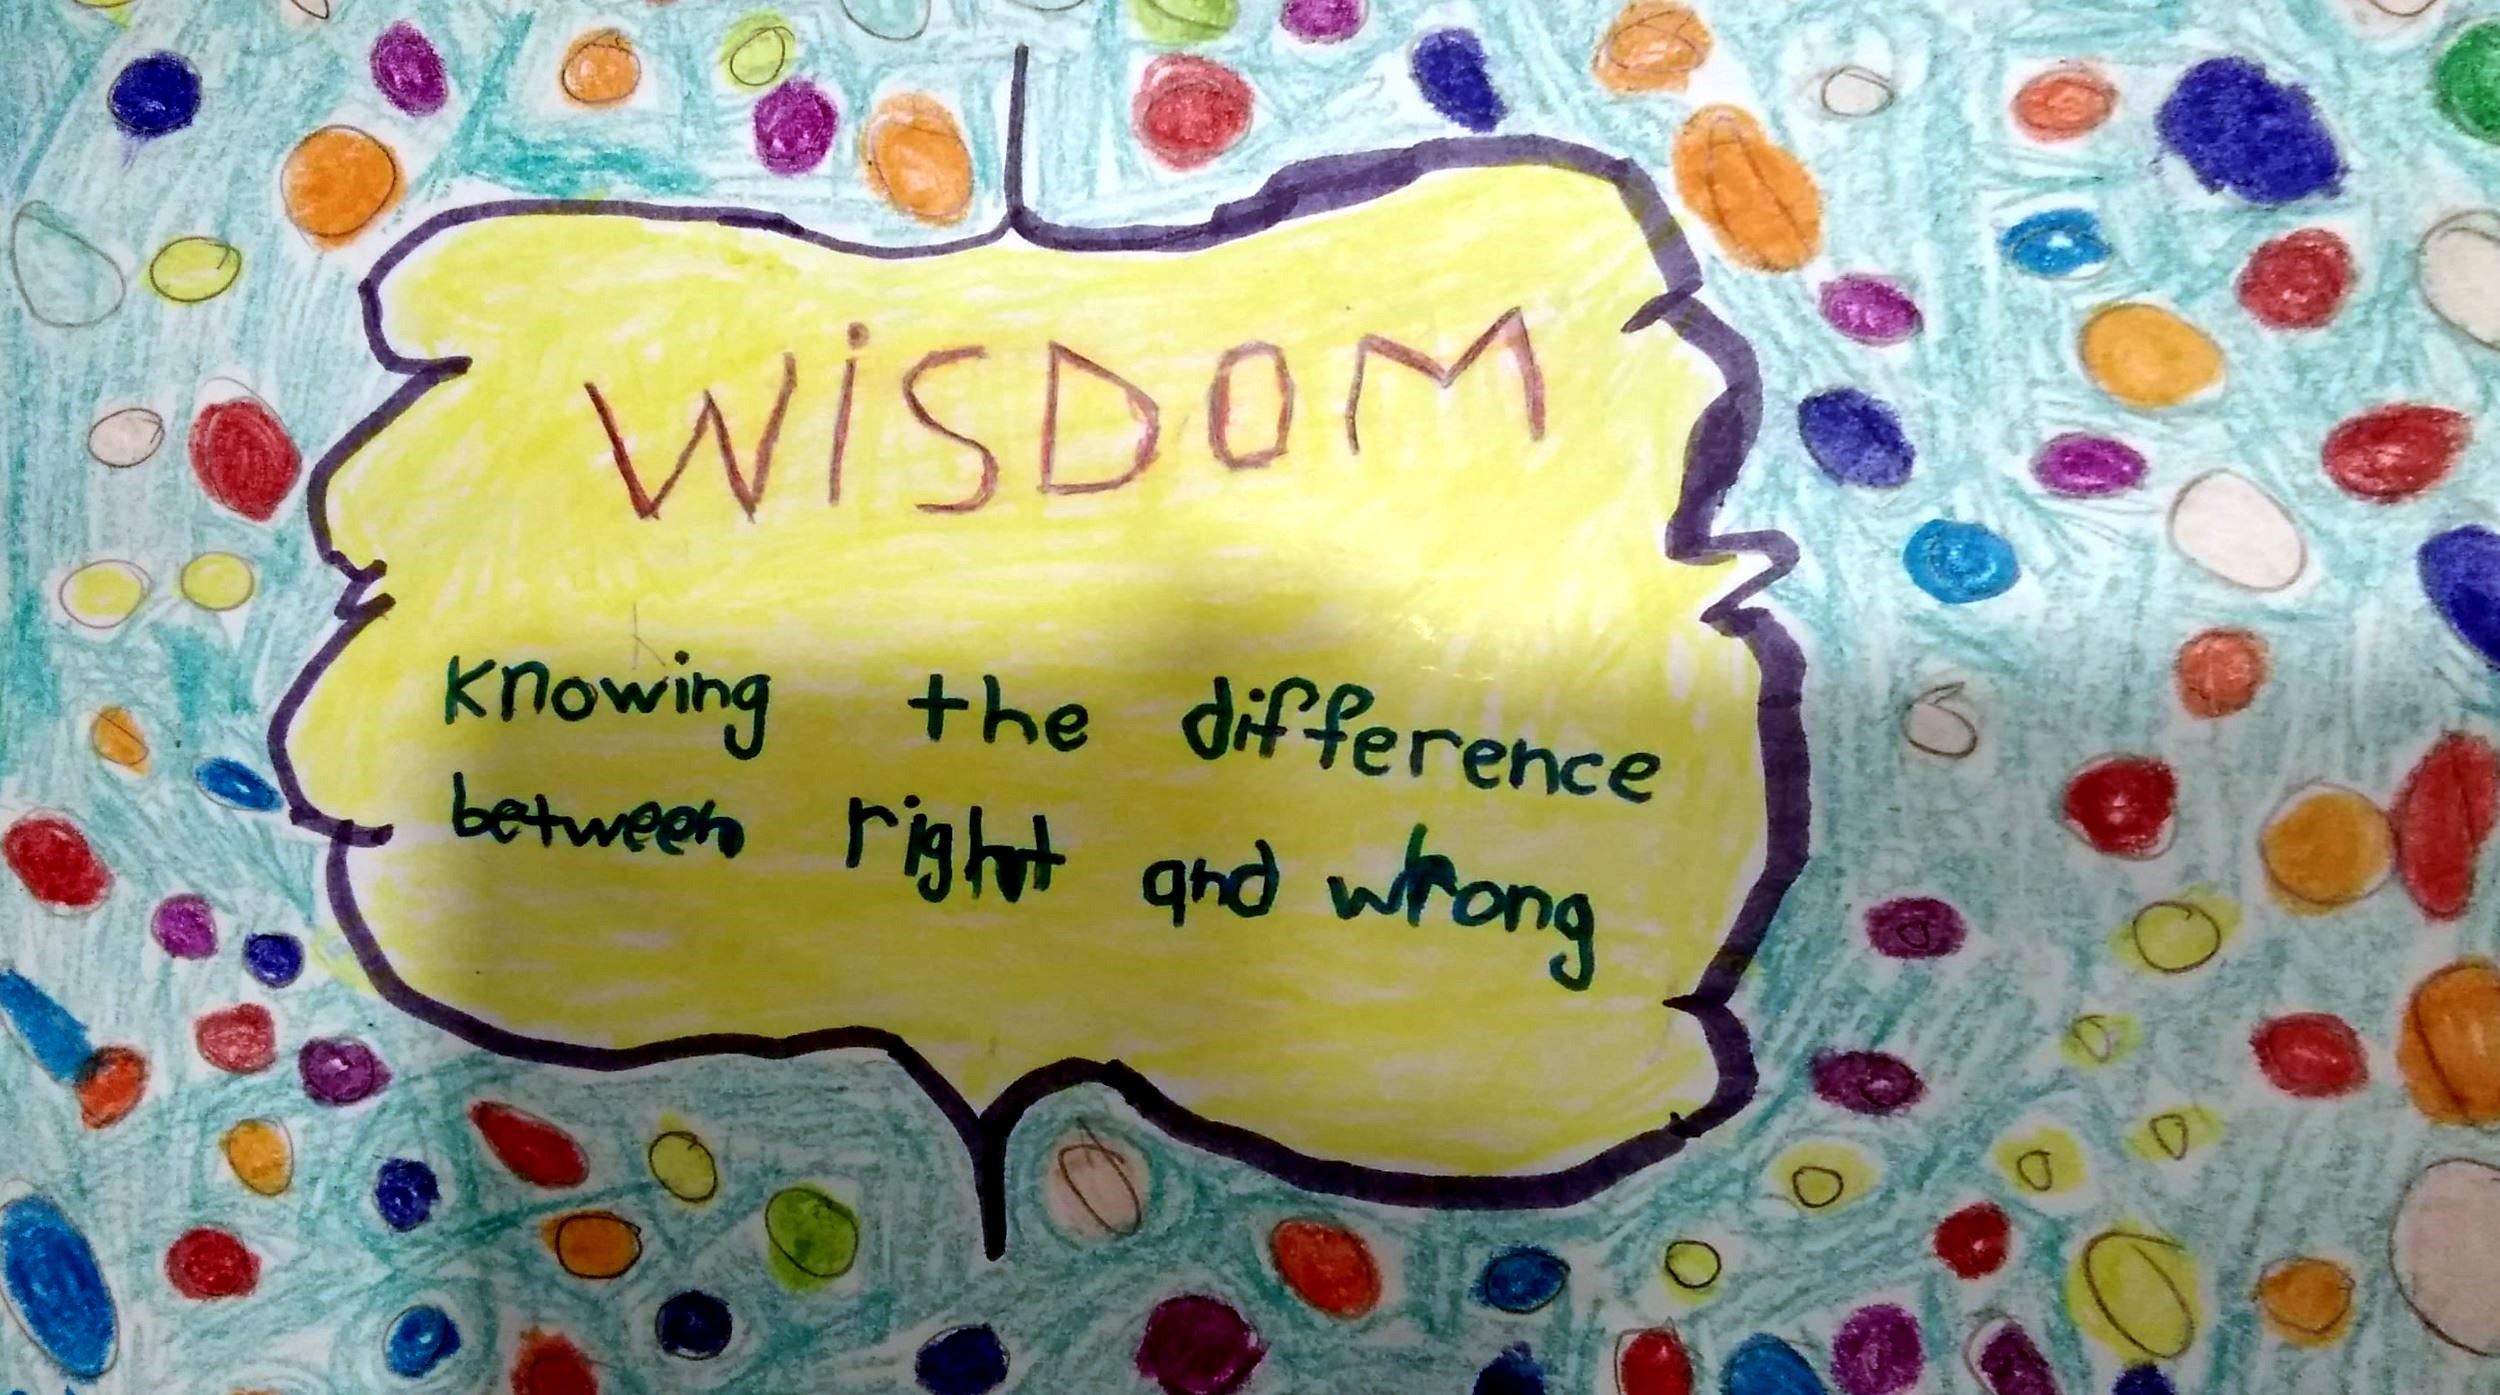 WiSDOM
Knowing the difference
between right and wrong